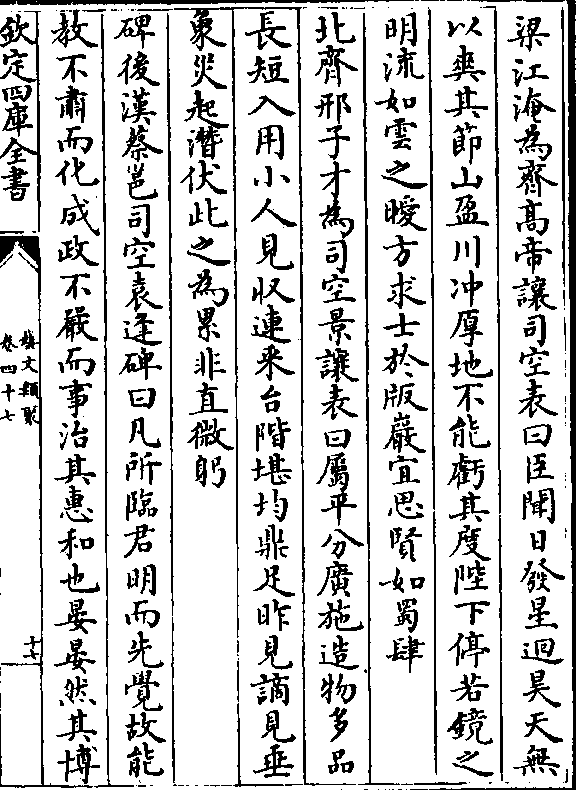 梁江淹為齊高帝讓司空表曰臣聞日發星迴昊天無
以爽其節山盈川冲厚地不能虧其度陛下停若鏡之
明流如雲之曖方求士於版巖宜思賢如蜀肆
北齊邢子才為司空景讓表曰屬平分廣施造物多品
長短入用小人見収連釆台階堪均鼎足昨見謫見垂
象災起潛伏此之為累非直微躬
碑後漢蔡邕司空袁逢碑曰凡所臨君明而先覺故能
教不肅而化成政不嚴而事治其惠和也晏晏然其博
欽定四庫全書
藝文類聚
卷四十七
十七